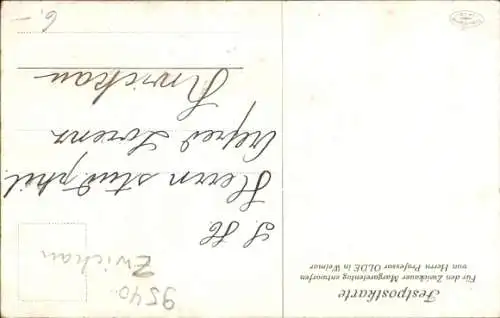 Festpostkarte
Für den Zwickauer Margaretentag entworfen
von Herrn Professor OLDE in Weimar
S. H.
Herrn stud. phil.
Alfred Lorenz
Zwickau
9540
Zwickau
6,-